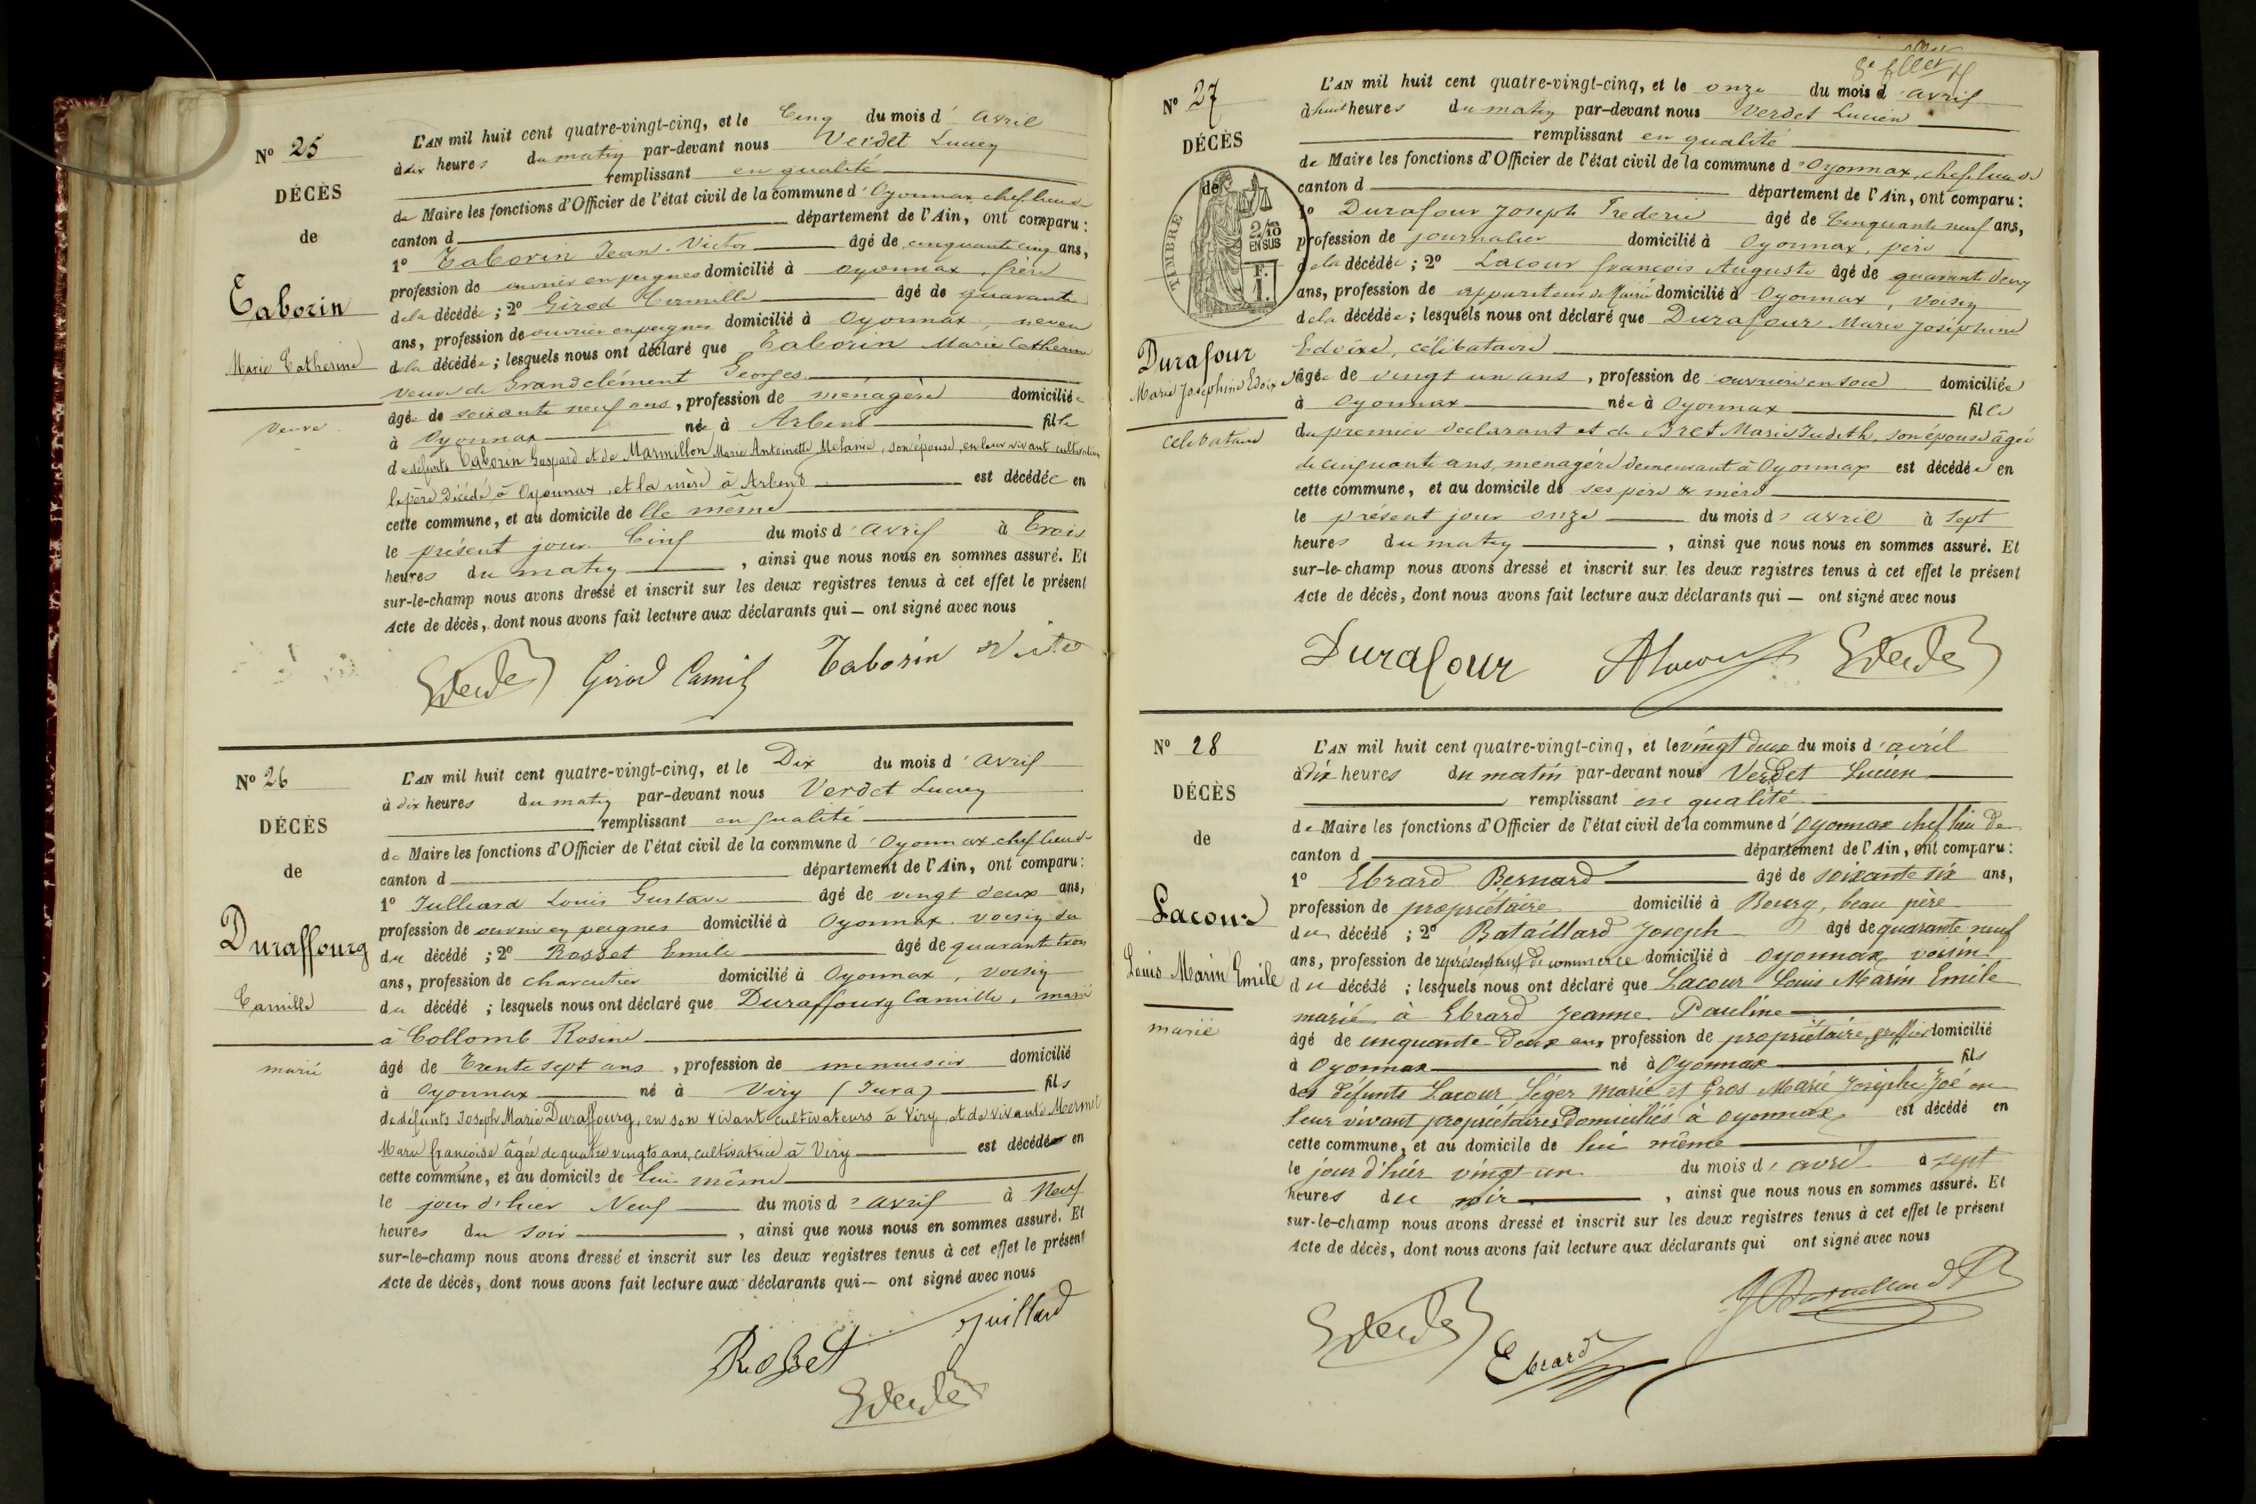 N° 25
DÉCÈS
de
Taborin
Marie Catherine
veuve
L'AN mil huit cent quatre-vingt-cinq, et le Cinq du mois d'avril
à dix heures du matin par-devant nous Verdet Lucien
remplissant en qualité
de Maire les fonctions d'Officier de l'état civil de la commune d'Oyonnax chef lieu de
canton d département de l'Ain, ont comparu :
1° Taborin Jean Victor âgé de cinquante cinq ans,
profession de ouvrier en peignes domicilié à Oyonnax, frère
de la décédée ; 2° Girod Camille âgé de quarante
ans, profession de ouvrier en peignes domicilié à Oyonnax, neveu
de la décédée ; lesquels nous ont déclaré que Taborin Marie Catherine
veuve de Grandclément Georges
âgée de soixante neuf ans, profession de ménagère domiciliée
à Oyonnax née à Arbent fille
de défunts Taborin Gaspard et de Marmillon Marie Antoinette Melanie, son épouse, en leur vivant cultivateurs
le père décédé à Oyonnax, et la mère à Arbent est décédée en
cette commune, et au domicile de elle même
le présent jour Cinq du mois d'avril à trois
heures du matin, ainsi que nous nous en sommes assuré. Et
sur-le-champ nous avons dressé et inscrit sur les deux registres tenus à cet effet le présent
Acte de décès, dont nous avons fait lecture aux déclarants qui — ont signé avec nous
Verdet Girod Camille Taborin Victor
N° 26
DÉCÈS
de
Duraffourg
Camille
marié
L'AN mil huit cent quatre-vingt-cinq, et le Dix du mois d'avril
à dix heures du matin par-devant nous Verdet Lucien
remplissant en qualité
de Maire les fonctions d'Officier de l'état civil de la commune d'Oyonnax chef lieu de
canton d département de l'Ain, ont comparu :
1° Julliard Louis Gustave âgé de vingt deux ans,
profession de ouvrier en peignes domicilié à Oyonnax voisin du
du décédé ; 2° Rosset Emile âgé de quarante trois
ans, profession de charcutier domicilié à Oyonnax, voisin
du décédé ; lesquels nous ont déclaré que Duraffourg Camille, marié
à Collomb Rosine
âgé de Trente sept ans, profession de menuisier domicilié
à Oyonnax né à Viry (Jura) fils
de défunts Joseph Marie Duraffourg, en son vivant cultivateurs à Viry, et de vivante Mermet
Marie françoise âgée de quatre vingts ans, cultivatrice à Viry est décédé en
cette commune, et au domicile de lui même
le jour d'hier Neuf du mois d'avril à Neuf
heures du soir, ainsi que nous nous en sommes assuré. Et
sur-le-champ nous avons dressé et inscrit sur les deux registres tenus à cet effet le présent
Acte de décès, dont nous avons fait lecture aux déclarants qui — ont signé avec nous
Rosset Juillard
Verdet
N° 27
DÉCÈS
de
TIMBRE
2/10 EN SUS
F. 1.
Durafour
Marie Josephine Edvixe
célibataire
L'AN mil huit cent quatre-vingt-cinq, et le onze du mois d'avril
à huit heures du matin par-devant nous Verdet Lucien
remplissant en qualité
de Maire les fonctions d'Officier de l'état civil de la commune d'Oyonnax, chef lieu de
canton d département de l'Ain, ont comparu :
1° Durafour Joseph Frederic âgé de Cinquante neuf ans,
profession de journalier domicilié à Oyonnax, père
de la décédée ; 2° Lacour françois Auguste âgé de quarante deux
ans, profession de appariteur de Mairie domicilié à Oyonnax, voisin
de la décédée ; lesquels nous ont déclaré que Durafour Marie Joséphine
Edvixe, célibataire
âgée de vingt un ans, profession de ouvrière en soie domiciliée
à Oyonnax née à Oyonnax fille
du premier déclarant et de Bret Marie Judith, son épouse âgée
de cinquante ans, ménagère demeurant à Oyonnax est décédée en
cette commune, et au domicile de ses père & mère
le présent jour onze du mois d'avril à sept
heures du matin, ainsi que nous nous en sommes assuré. Et
sur-le-champ nous avons dressé et inscrit sur les deux registres tenus à cet effet le présent
Acte de décès, dont nous avons fait lecture aux déclarants qui — ont signé avec nous
Durafour ALacour Verdet
N° 28
DÉCÈS
de
Lacour
Louis Marin Emile
marié
L'AN mil huit cent quatre-vingt-cinq, et le vingt deux du mois d'avril
à dix heures du matin par-devant nous Verdet Lucien
remplissant en qualité
de Maire les fonctions d'Officier de l'état civil de la commune d'Oyonnax chef lieu de
canton d département de l'Ain, ont comparu :
1° Ebrard Bernard âgé de soixante six ans,
profession de propriétaire domicilié à Bourg, beau père
du décédé ; 2° Bataillard Joseph âgé de quarante neuf
ans, profession de représentant de commerce domicilié à Oyonnax voisin
du décédé ; lesquels nous ont déclaré que Lacour Louis Marin Emile
marié à Ebrard Jeanne Pauline
âgé de cinquante deux ans profession de propriétaire, greffier domicilié
à Oyonnax né à Oyonnax fils
des défunts Lacour Léger Marie et Gros Marie Josephe Zoé en
leur vivant propriétaires domiciliés à Oyonnax est décédé en
cette commune, et au domicile de lui même
le jour d'hier vingt un du mois d'avril à sept
heures du soir, ainsi que nous nous en sommes assuré. Et
sur-le-champ nous avons dressé et inscrit sur les deux registres tenus à cet effet le présent
Acte de décès, dont nous avons fait lecture aux déclarants qui ont signé avec nous
Verdet Ebrard J Bataillard